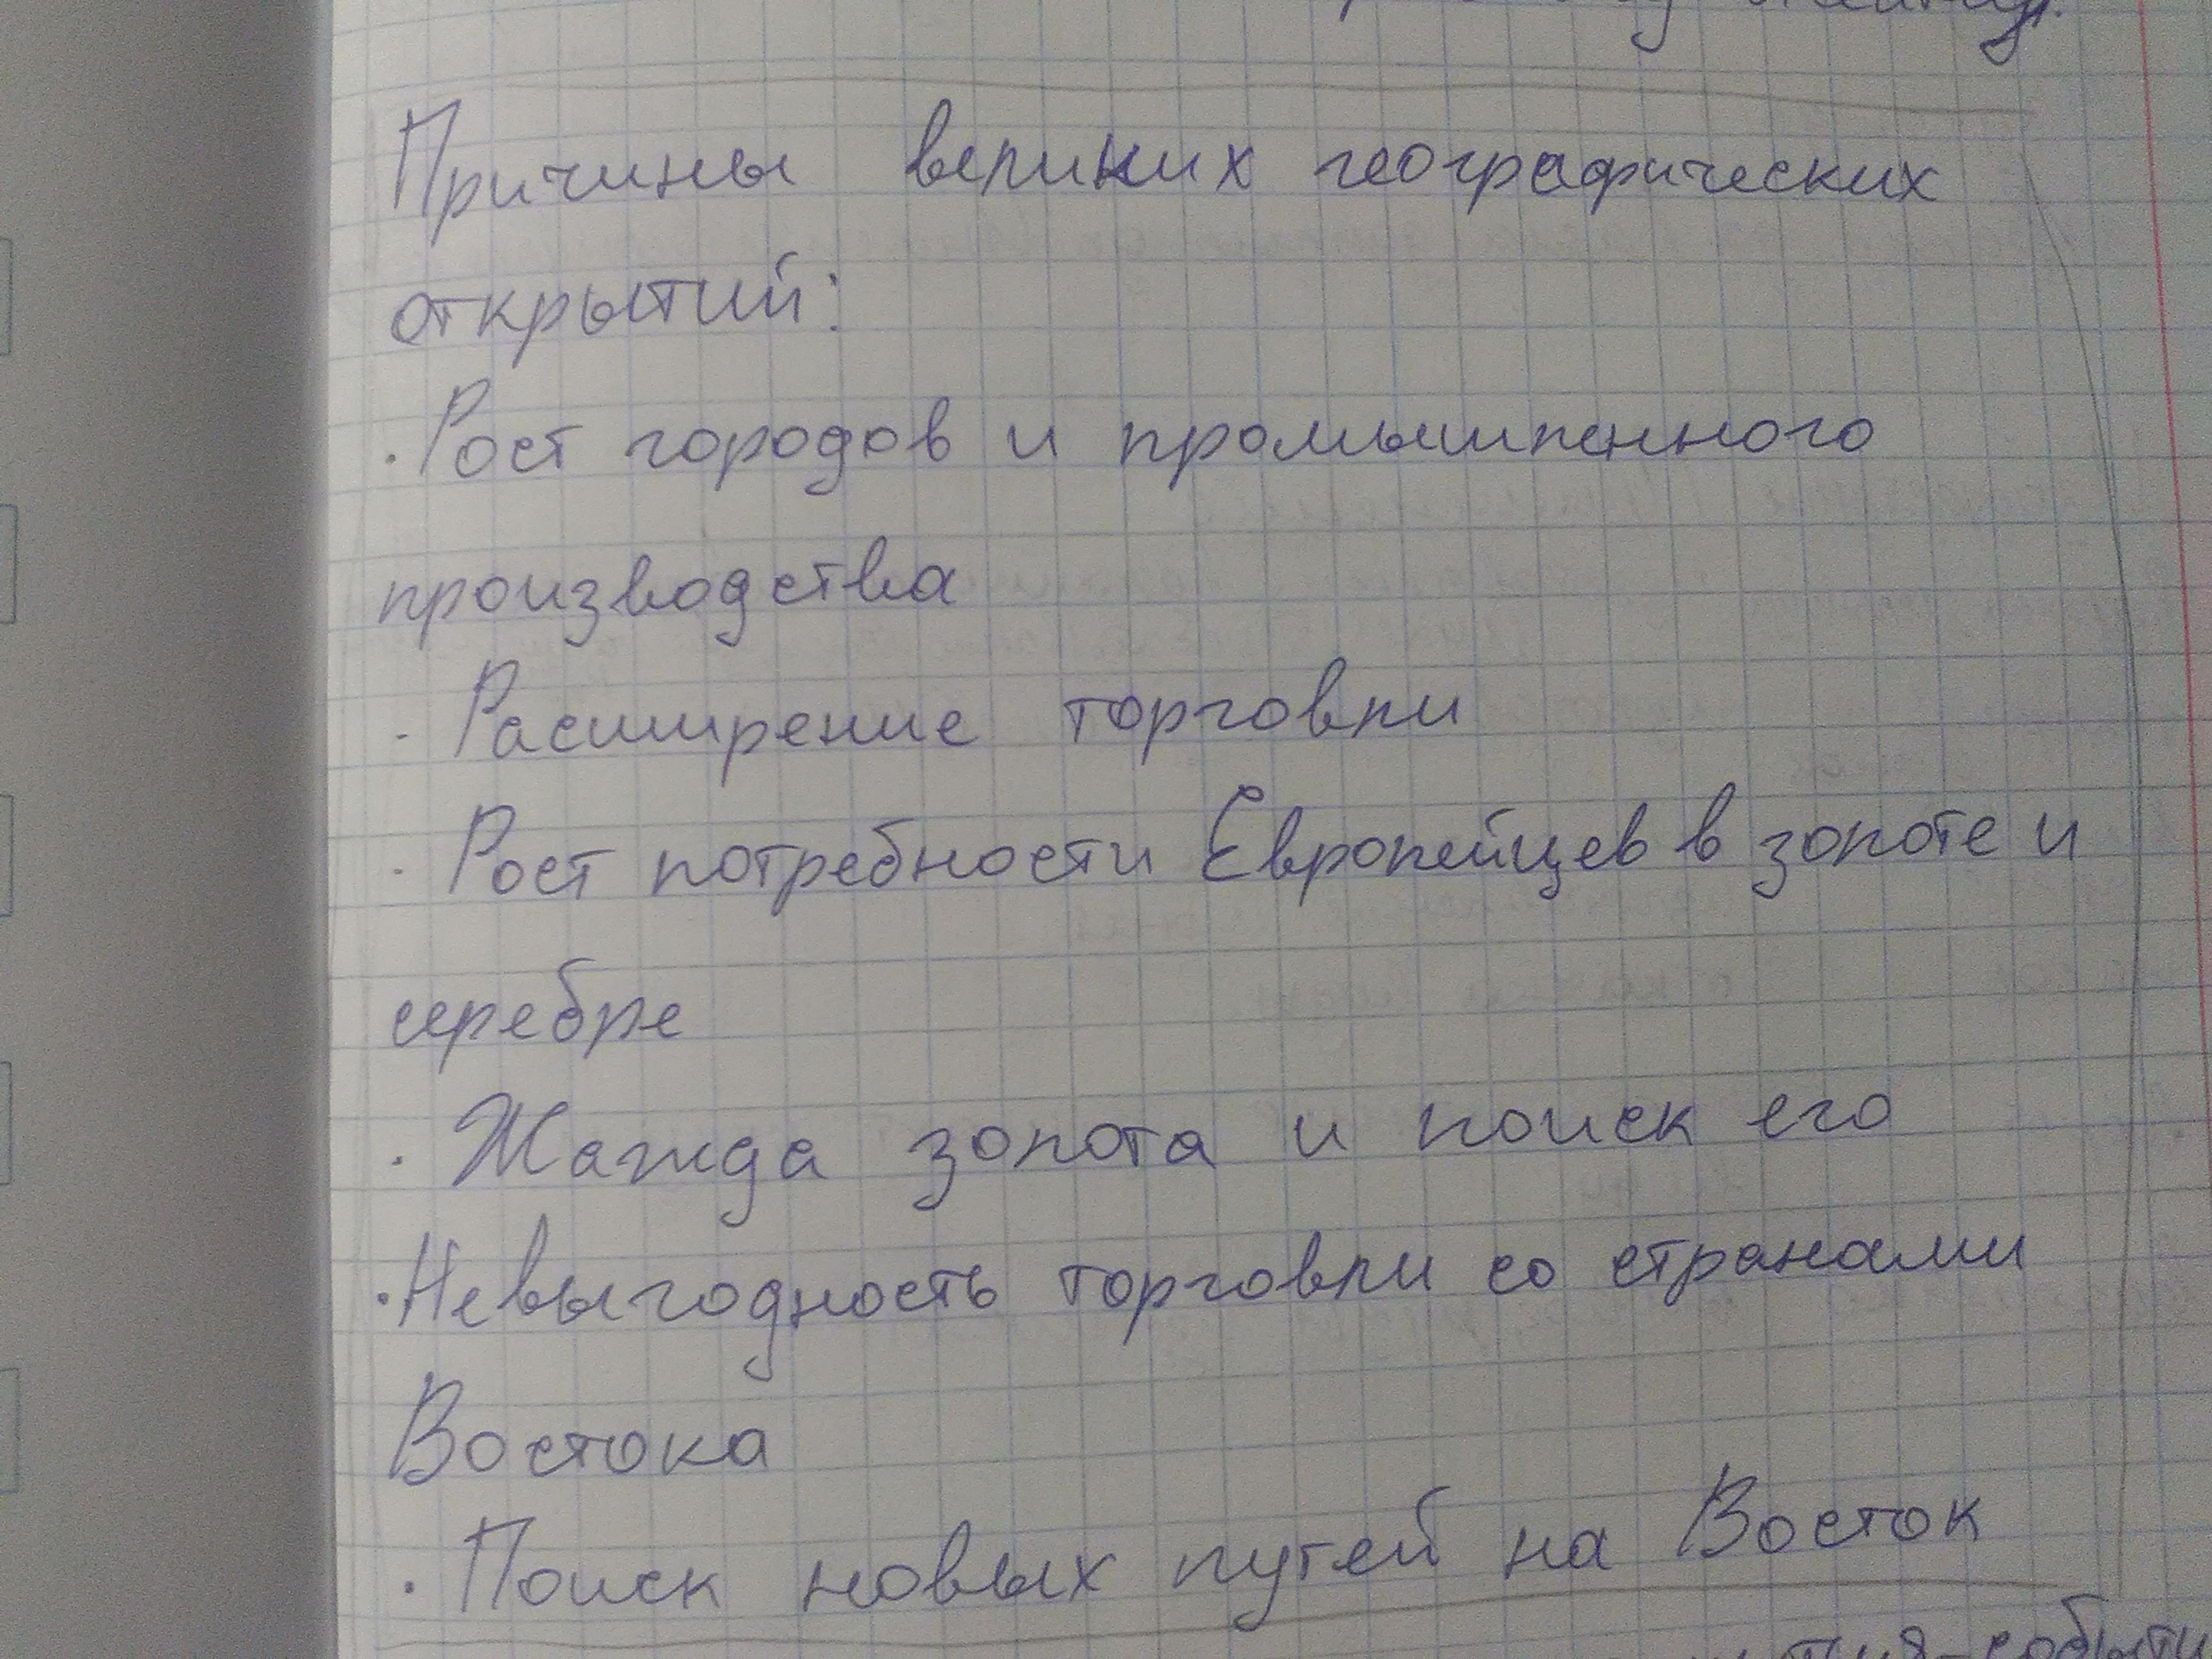 Причины великих географических
открытий:
· Рост городов и промышленного
производства
- Расширение торговли
· Рост потребности Европейцев в золоте и
серебре
· Жажда золота и поиск его
· Невыгодность торговли со странами
Востока
· Поиск новых путей на Восток